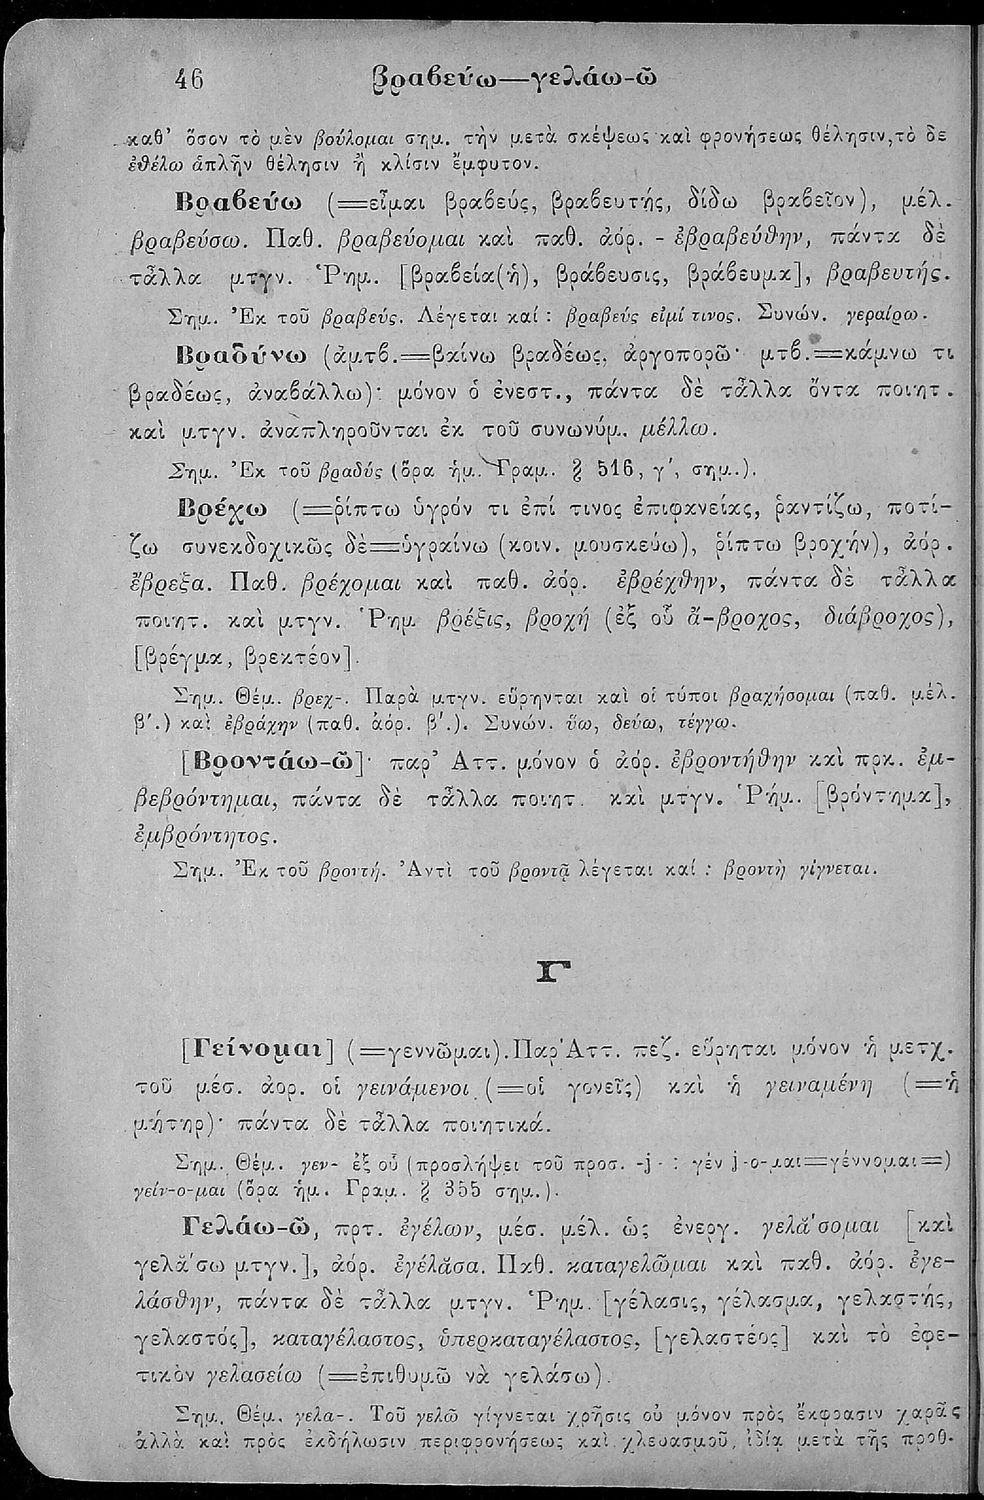 46 βραβεύω—γελάω-ῶ
καθ' ὅσον τὸ μὲν βούλομαι σημ. τὴν μετὰ σκέψεως καὶ φρονήσεως θέλησιν, τὸ δὲ
ἐθέλω ἁπλῆν θέλησιν ἢ κλίσιν ἔμφυτον.
Βραβεύω (=εἶμαι βραβεύς, βραβευτής, δίδω βραβεῖον), μέλ.
βραβεύσω. Παθ. βραβεύομαι καὶ παθ. ἀόρ. - ἐβραβεύθην, πάντα δὲ
τἆλλα μτγν. Ῥημ. [βραβεία(ἡ), βράβευσις, βράβευμα], βραβευτής.
Σημ. Ἐκ τοῦ βραβεύς. Λέγεται καί : βραβεύς εἰμί τινος. Συνών. γεραίρω.
Βραδύνω (ἀμτβ.=βαίνω βραδέως, ἀργοπορῶ· μτβ.=κάμνω τι
βραδέως, ἀναβάλλω)· μόνον ὁ ἐνεστ., πάντα δὲ τἆλλα ὄντα ποιητ.
καὶ μτγν. ἀναπληροῦνται ἐκ τοῦ συνωνύμ. μέλλω.
Σημ. Ἐκ τοῦ βραδύς (ὅρα ἡμ. Γραμ. § 516, γ', σημ.).
Βρέχω (=ῥίπτω ὑγρόν τι ἐπί τινος ἐπιφανείας, ῥαντίζω, ποτί-
ζω συνεκδοχικῶς δὲ=ὑγραίνω (κοιν. μουσκεύω), ῥίπτω βροχήν), ἀόρ.
ἔβρεξα. Παθ. βρέχομαι καὶ παθ. ἀόρ. ἐβρέχθην, πάντα δὲ τἆλλα
ποιητ. καὶ μτγν. Ῥημ. βρέξις, βροχή (ἐξ οὗ ἄ-βροχος, διάβροχος),
[βρέγμα, βρεκτέον].
Σημ. Θέμ. βρεχ-. Παρὰ μτγν. εὕρηνται καὶ οἱ τύποι βραχήσομαι (παθ. μέλ.
β'.) καὶ ἐβράχην (παθ. ἀόρ. β'.). Συνών. ὕω, δεύω, τέγγω.
[Βροντάω-ῶ]· παρ' Ἀττ. μόνον ὁ ἀόρ. ἐβροντήθην καὶ πρκ. ἐμ-
βεβρόντημαι, πάντα δὲ τἆλλα ποιητ. καὶ μτγν. Ῥήμ. [βρόντημα],
ἐμβρόντητος.
Σημ. Ἐκ τοῦ βροντή. Ἀντὶ τοῦ βροντᾷ λέγεται καί : βροντὴ γίγνεται.
Γ
[Γείνομαι] (=γεννῶμαι). Παρ' Ἀττ. πεζ. εὕρηται μόνον ἡ μετχ.
τοῦ μέσ. ἀορ. οἱ γεινάμενοι (=οἱ γονεῖς) καὶ ἡ γειναμένη (=ἡ
μήτηρ)· πάντα δὲ τἆλλα ποιητικά.
Σημ. Θέμ. γεν- ἐξ οὗ (προσλήψει τοῦ προσ. -j- : γέν-j-ο-μαι=γέννομαι=)
γείν-ο-μαι (ὅρα ἡμ. Γραμ. § 355 σημ.).
Γελάω-ῶ, πρτ. ἐγέλων, μέσ. μέλ. ὡς ἐνεργ. γελᾰ'σομαι [καὶ
γελᾰ'σω μτγν.], ἀόρ. ἐγέλᾰσα. Παθ. καταγελῶμαι καὶ παθ. ἀόρ. ἐγε-
λάσθην, πάντα δὲ τἆλλα μτγν. Ῥημ. [γέλασις, γέλασμα, γελαστής,
γελαστός], καταγέλαστος, ὑπερκαταγέλαστος, [γελαστέος] καὶ τὸ ἐφε-
τικὸν γελασείω (=ἐπιθυμῶ νὰ γελάσω).
Σημ. Θέμ. γελα-. Τοῦ γελῶ γίγνεται χρῆσις οὐ μόνον πρὸς ἔκφρασιν χαρᾶς
ἀλλὰ καὶ πρὸς ἐκδήλωσιν περιφρονήσεως καὶ χλευασμοῦ, ἰδίᾳ μετὰ τῆς προθ.